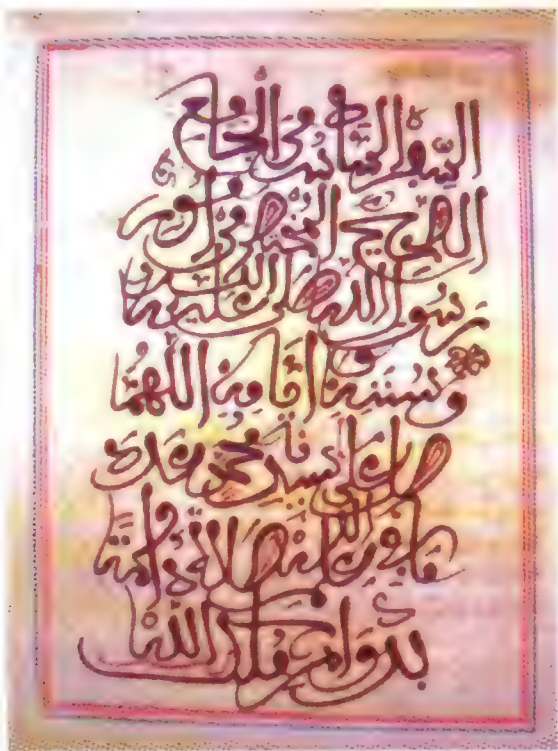 السفر الثاني من الجامع
الصحيح المختصر من أمور
رسول الله صلى الله عليه
وسننه وأيامه اللهم
صل على سيدنا محمد عدد
ما في علم الله صلاة دائمة
بدوام ملك الله